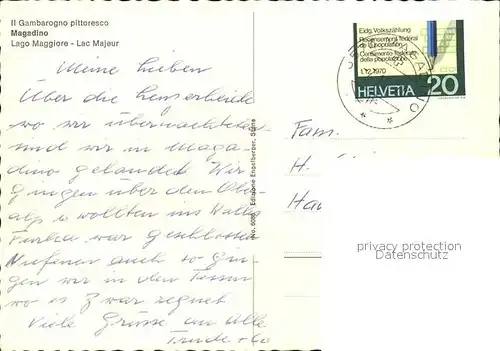 Il Gambarogno pittoresco
Magadino
Lago Maggiore - Lac Majeur
Meine Lieben
Über die Lenzerheide
wo wir übernachteten
sind wir in Maga-
dino gelandet. Wir
gingen über den Ober-
alp u wollten ins Wallis
Furka war geschlossen
Nufenen auch so gin-
gen wir in den Tessin
wo es zwar regnet
Viele Grüsse an Alle
Trude + Co
Edizione Engelberger, Stans
Eidg. Volkszählung
Recensement fédéral
de la population
Censimento federale
della popolazione
1.12.1970
HELVETIA 20
MAGADINO
Fam.
H.
privacy protection
Datenschutz